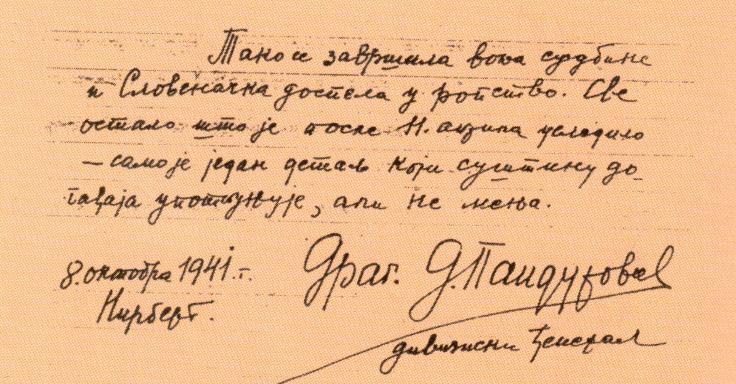 Тако се завршила воља судбине
и Словеначка доспела у ропство. Све
остало што је после 11. априла уследило
– само је један детаљ који суштину до-
гађаја употпуњује, али не мења.
8. октобра 1941. г.
Нирберг.
Драг. Пандуровић
дивизиски ђенерал